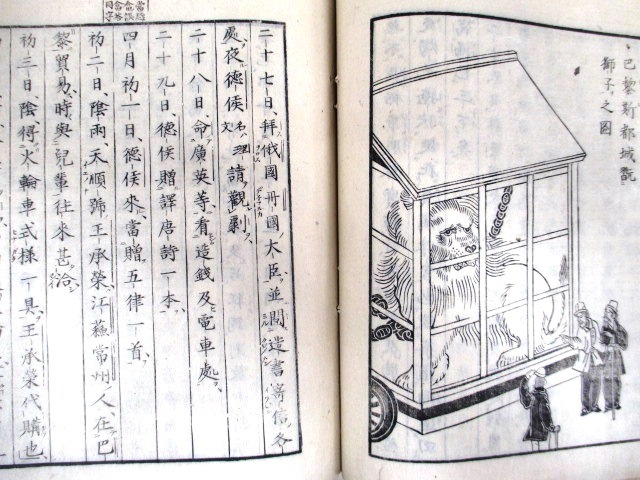 巴黎斯都城觀
獅子之圖
二十七日、拜俄國丹國大臣並閱造書寄信各
處、夜德侯名ハ理文請觀劇、
二十八日、命廣英等看造錢及電車處、
二十九日、德侯贈譯唐詩一本、
四月初一日、德侯來、當贈五律一首、
初二日、陰雨、天順號王承榮、江蘇常州人、在巴
黎貿易、時與兒輩往來甚洽、
初三日、陰、得火輪車式樣一具、王承榮代購也、